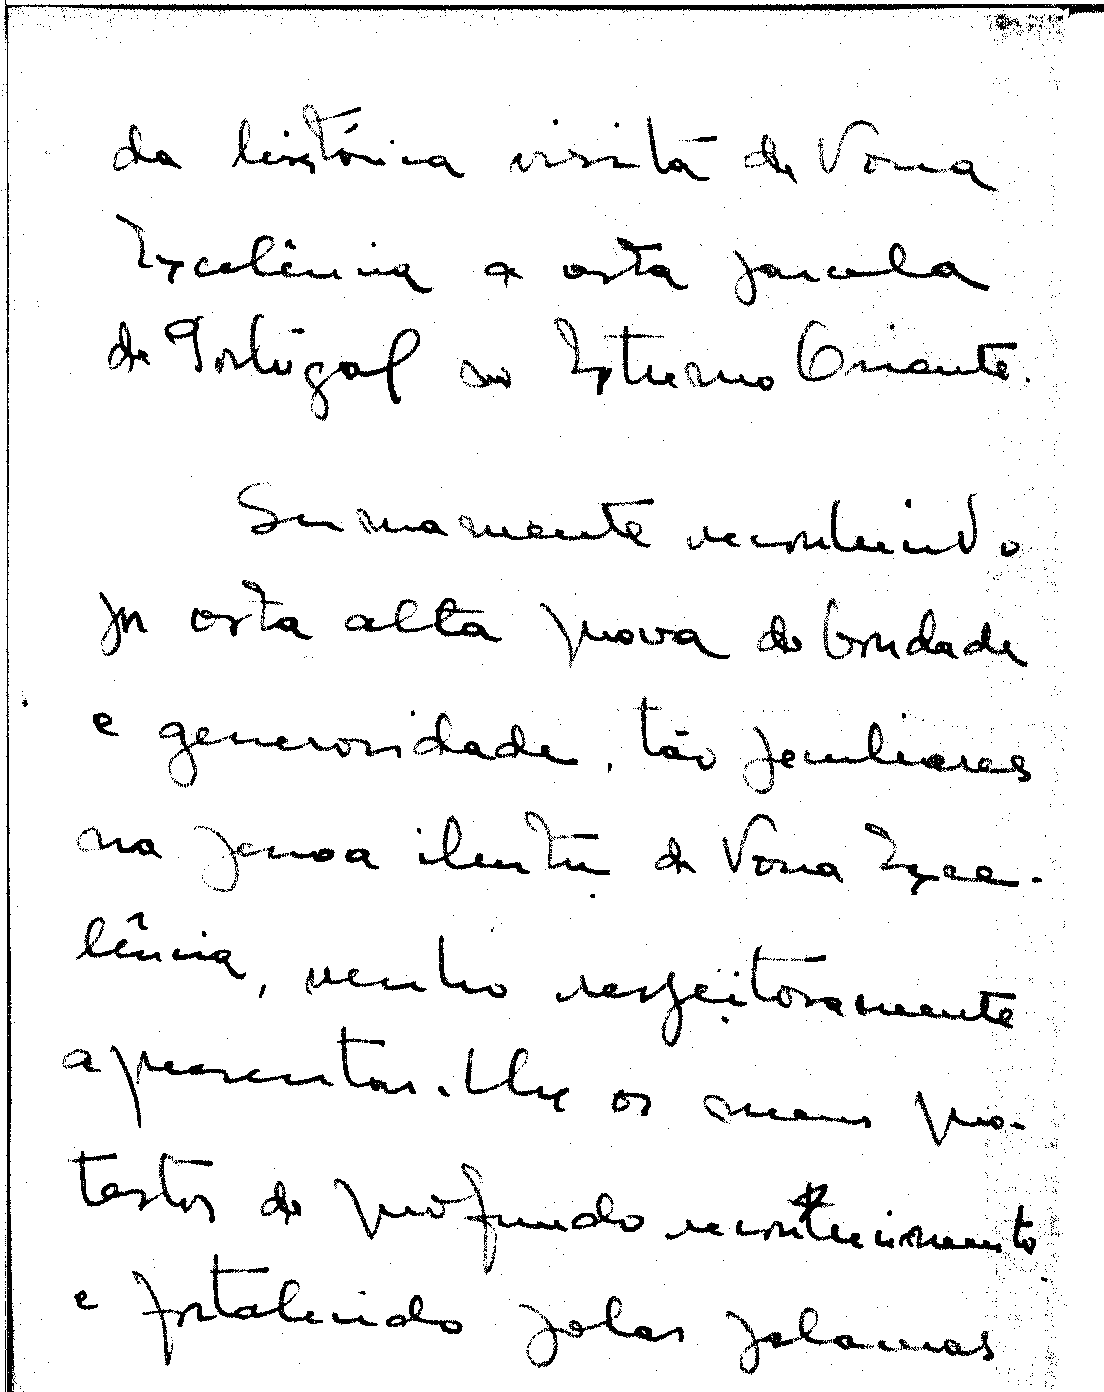 da histórica visita de Vossa
Excelência a esta parcela
de Portugal no Extremo Oriente.
Sumamente reconhecido
por esta alta prova de bondade
e generosidade, tão familiares
na pessoa ilustre de Vossa Exce-
lência, venho respeitosamente
apresentar-lhe os meus pro-
testos de profundo reconhecimento
e fortalecido pelas palavras